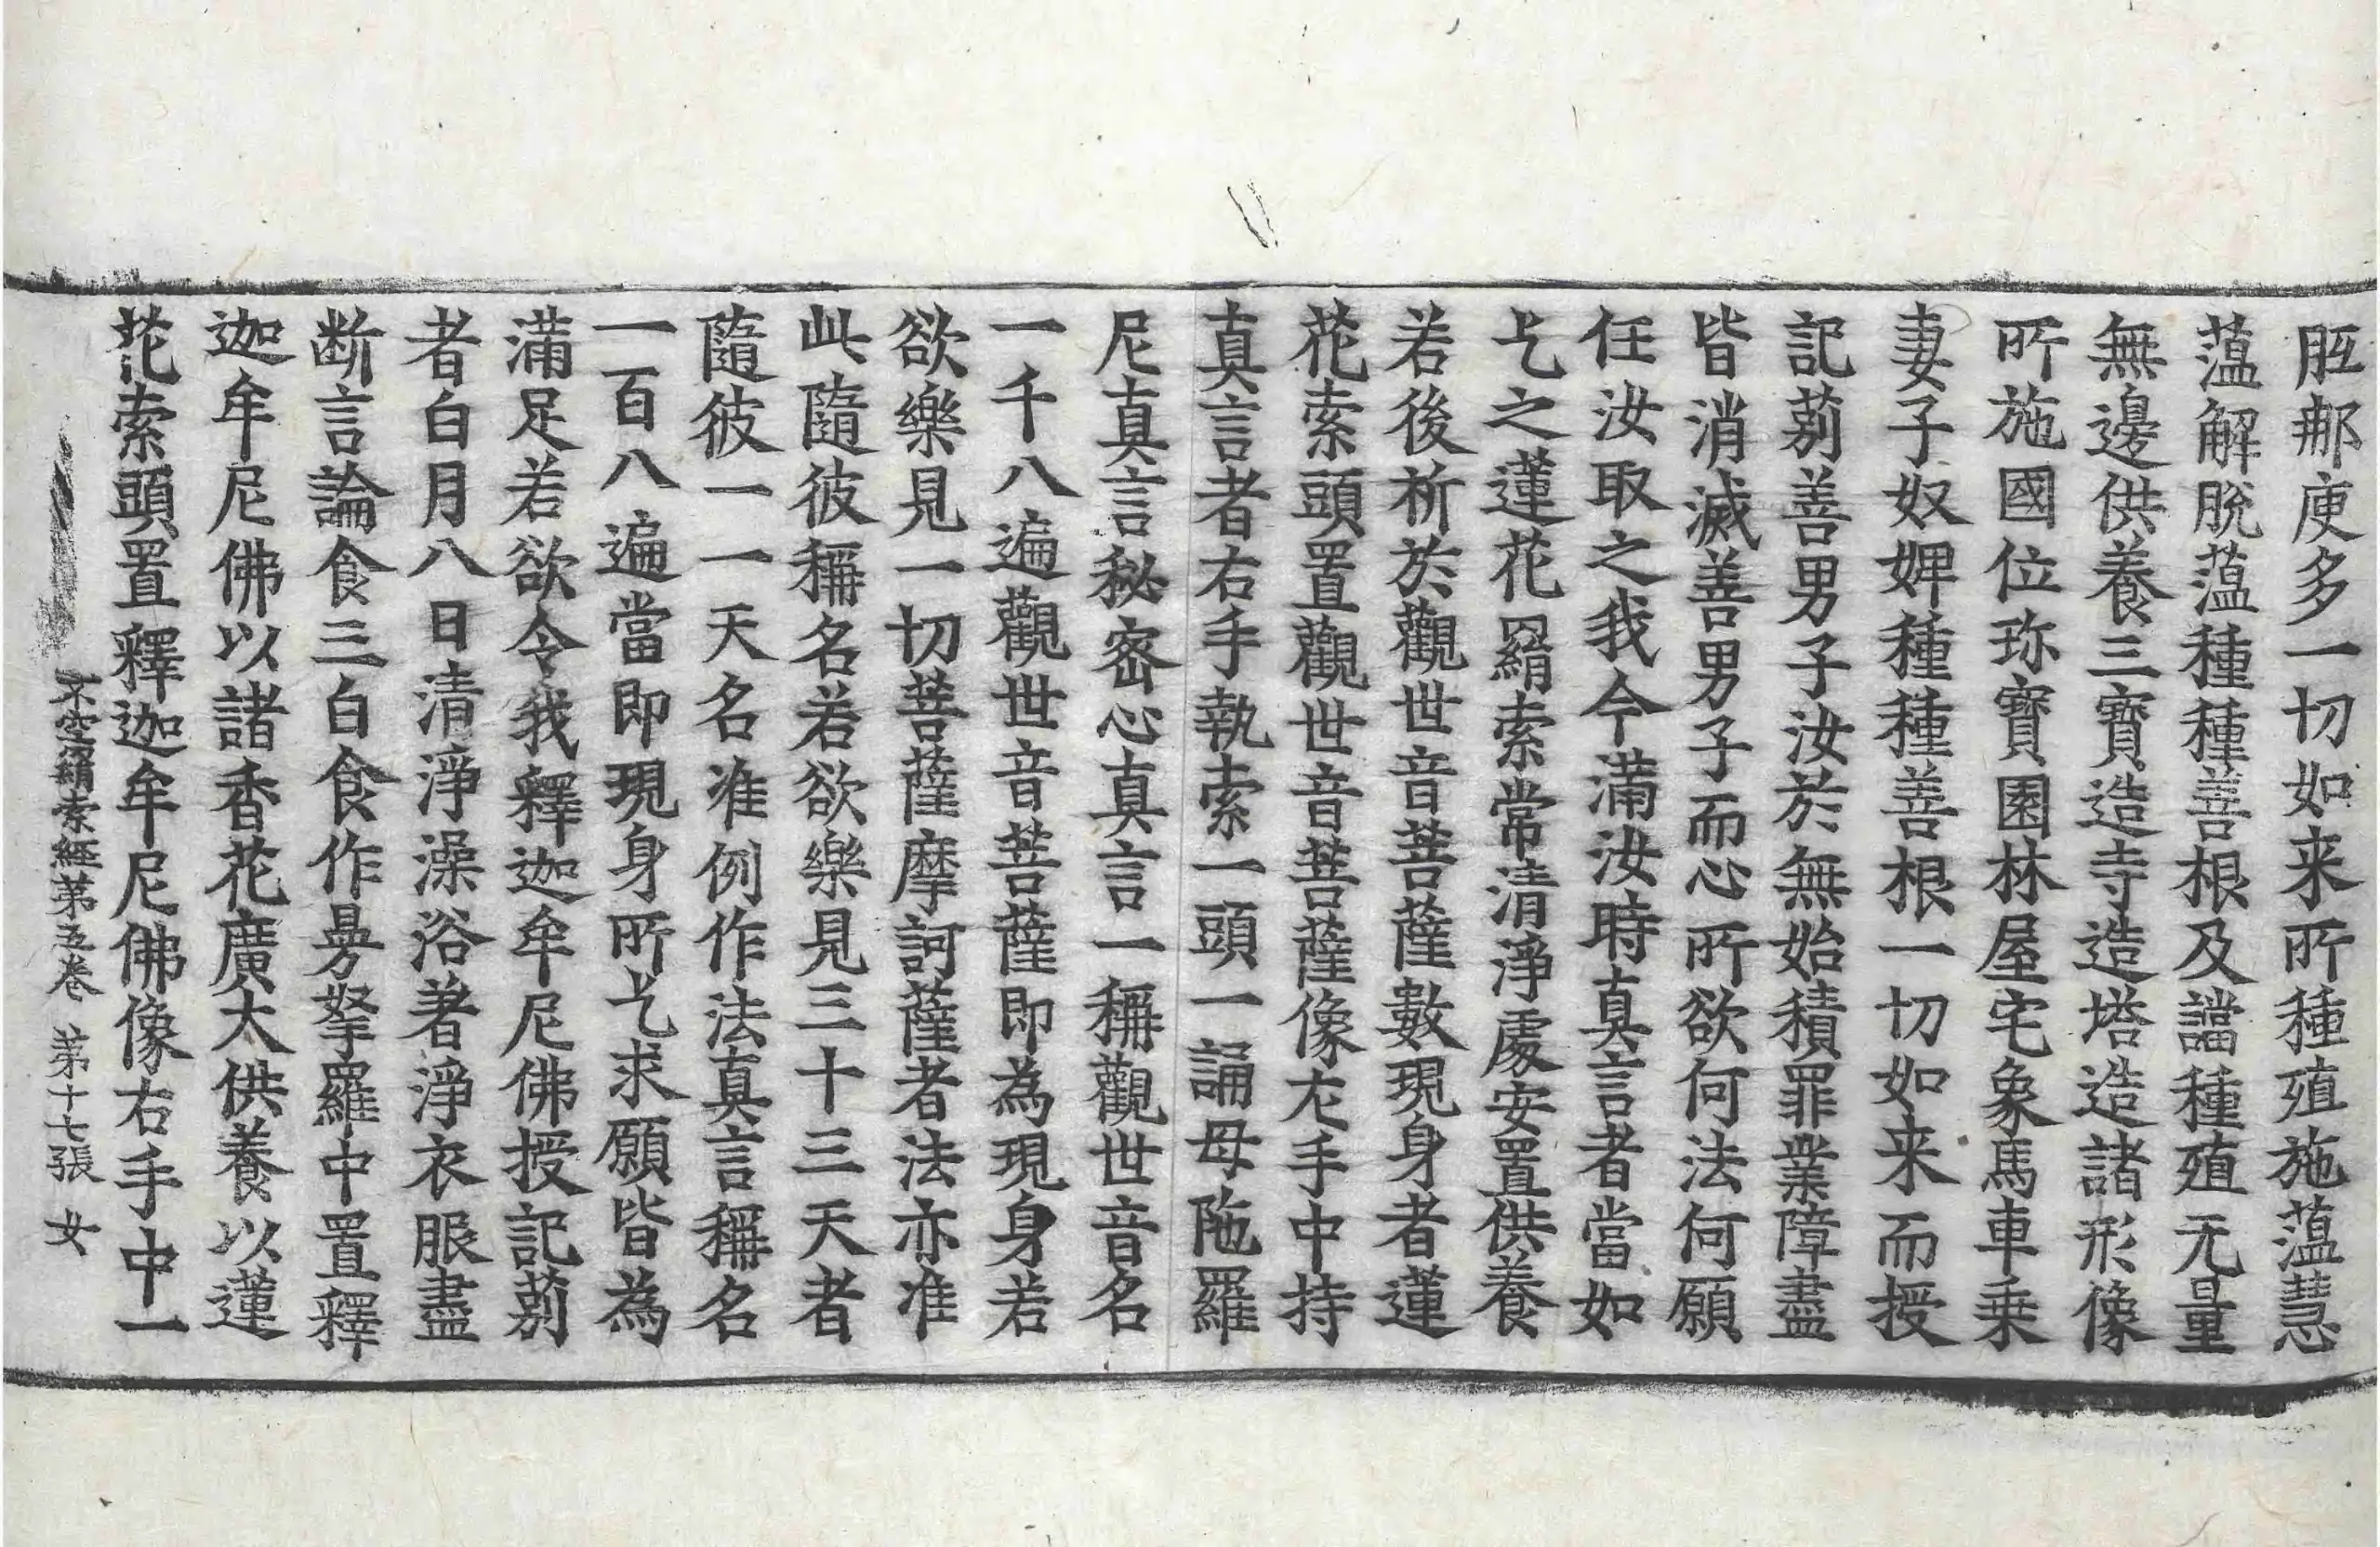 胝那庾多一切如来所種殖施薀慧
薀解脫薀種種善根及譡種殖无量
無邊供養三寶造寺造塔造諸形像
所施國位珎寶園林屋宅象馬車乗
妻子奴婢種種善根一切如来而授
記莂善男子汝於無始積罪業障盡
皆消滅善男子而心所欲何法何願
任汝取之我今滿汝時真言者當如
乞之蓮花羂索常清淨處安置供養
若後祈於觀世音菩薩數現身者蓮
花索頭置觀世音菩薩像左手中持
真言者右手執索一頭一誦母陁羅
尼真言秘密心真言一稱觀世音名
一千八遍觀世音菩薩即為現身若
欲樂見一切菩薩摩訶薩者法亦准
此隨彼稱名若欲樂見三十三天者
隨彼一一天名准例作法真言稱名
一百八遍當即現身所乞求願皆為
滿足若欲令我釋迦牟尼佛授記莂
者白月八日清淨澡浴著淨衣服盡
断言論食三白食作曼拏羅中置釋
迦牟尼佛以諸香花廣大供養以蓮
花索頭置釋迦牟尼佛像右手中一
不空羂索經第五卷 第十七張 女